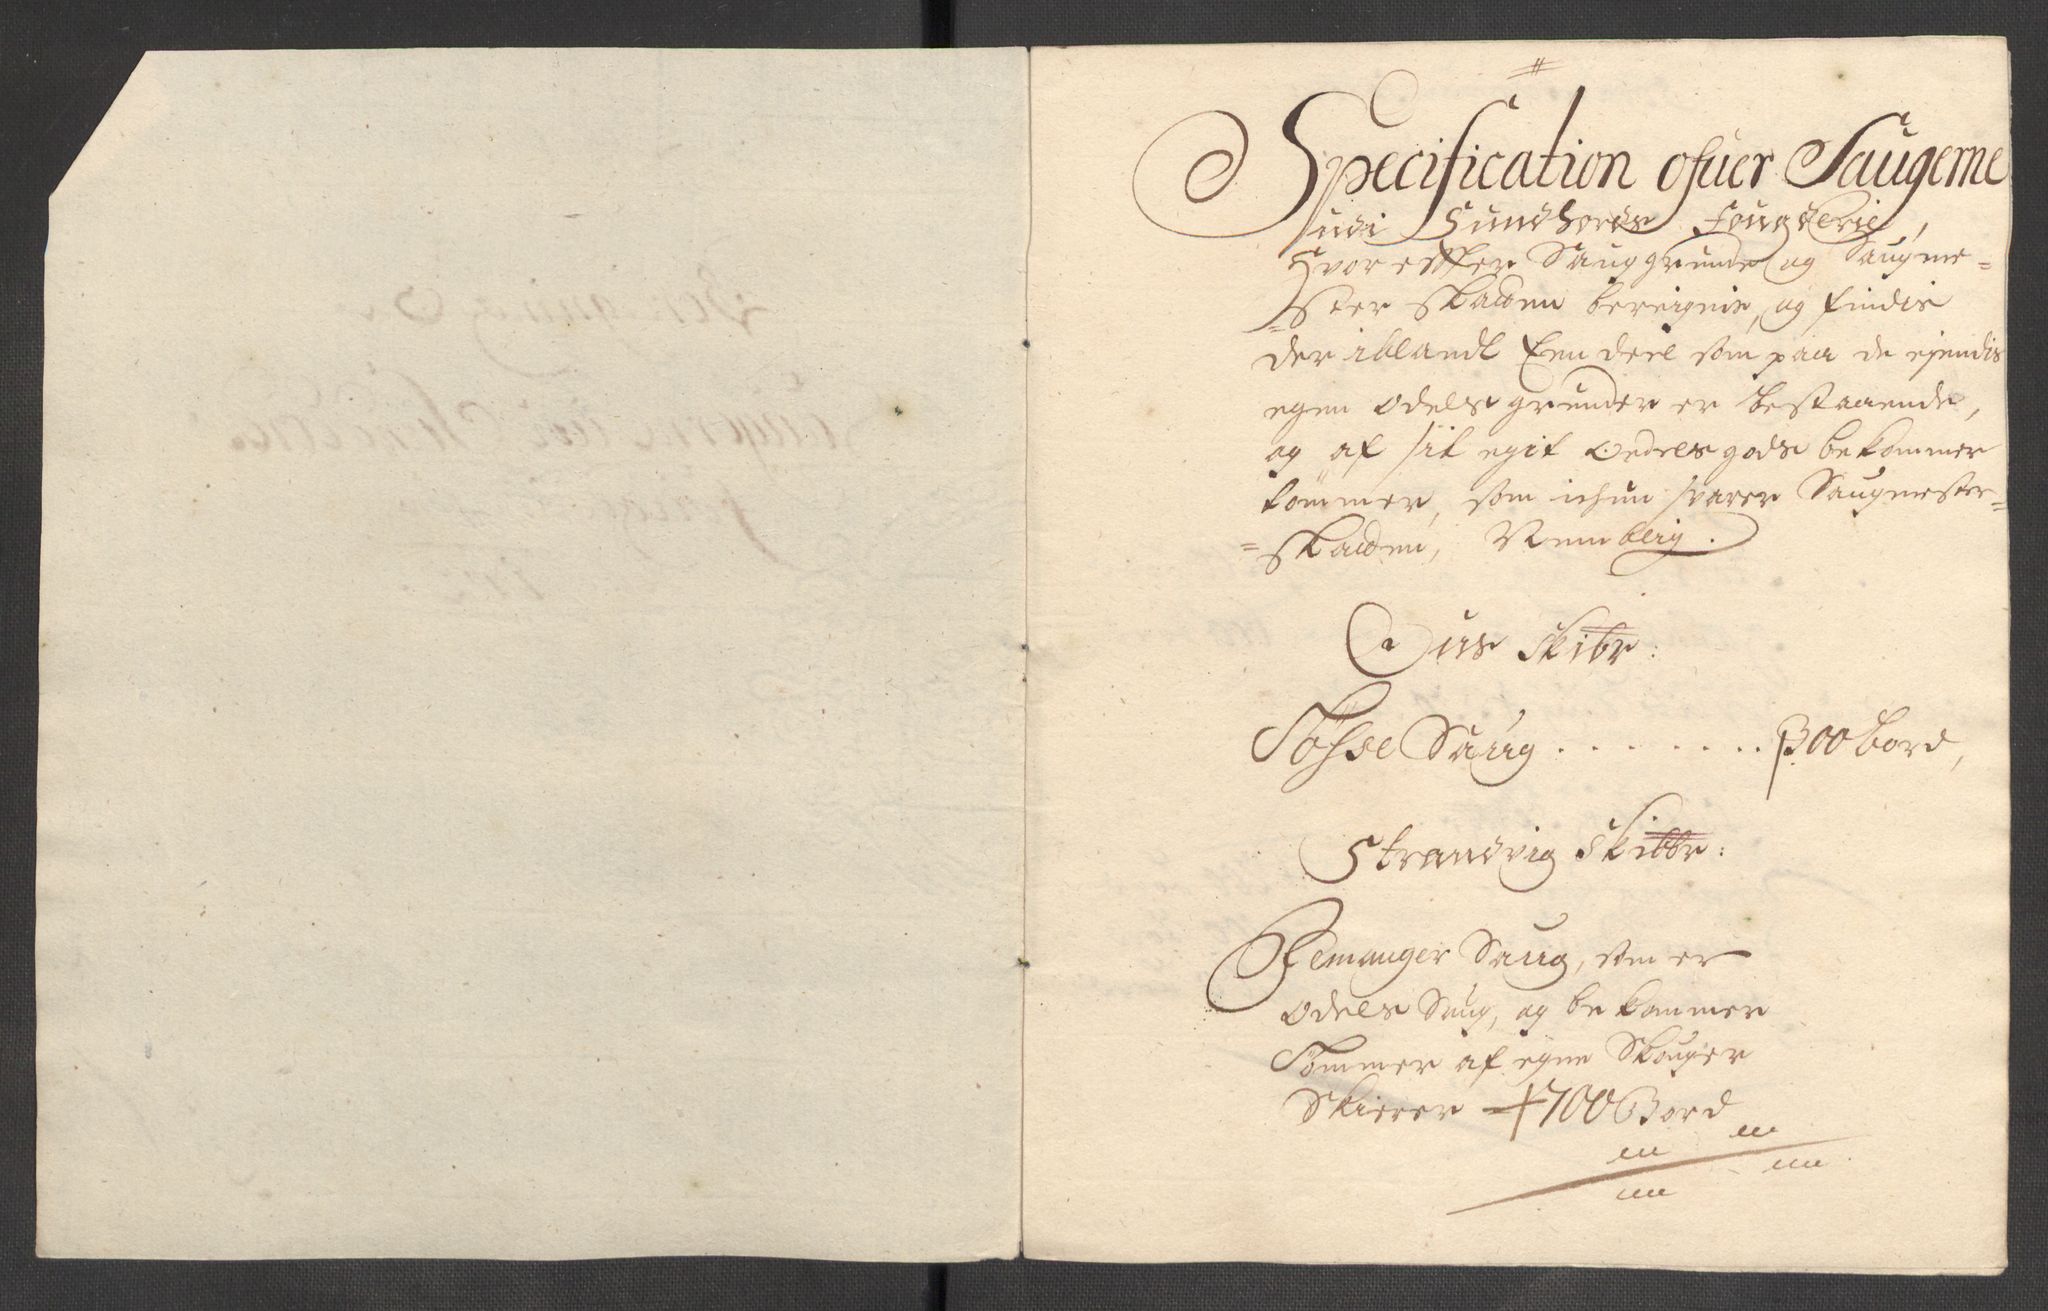 Specification ofuer Saugerne
udi Sundhords Fougderie,
Hvor effter Sauggrunde og Saugme=
=ster Skatten bereignis, og findis
der iblandt Een deel som paa de ejendis
egen Odels grunder er bestaaende,
og af sit egit Odelsgods bekommer
tømmer, som ichun svarer Saugmester=
=Skatten, Nemblig.
Ous Skibr:
Tøsse Saug . . . . . . . . 300 bord,
Strandvig Skibbr:
Femanger Saug, som er
Odels Saug, og bekommer
Tømmer af egne Skouger
Skierer 700 Bord